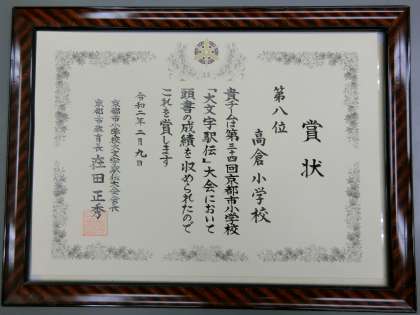 賞状
第八位
高倉小学校
貴チームは第三十四回京都市小学校
「大文字駅伝」大会において
頭書の成績を収められたので
これを賞します
令和二年二月九日
京都市小学校大文字駅伝大会会長
京都市教育長
在田正秀